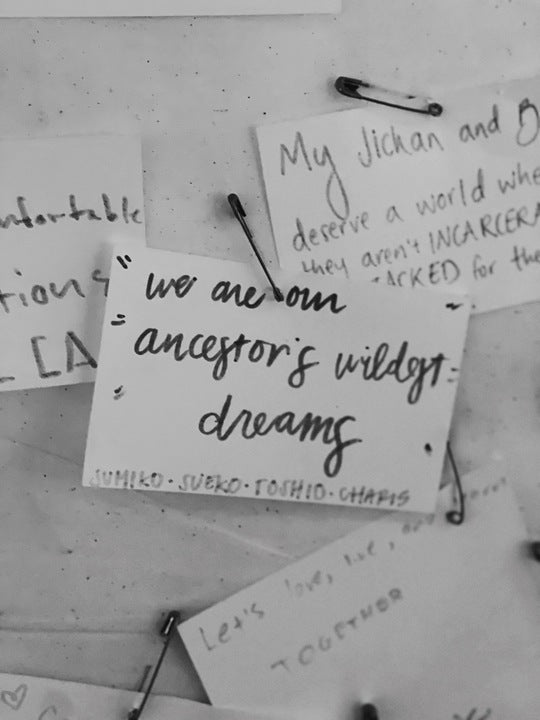 My Jichan and B
deserve a world whe
they aren't INCARCERA
ACKED for the
nfortable
tions
[A
we are our
ancestor's wildest
dreams
SUMIKO · SUEKO · TOSHIO · CHARIS
Let's love, live, and
TOGETHER